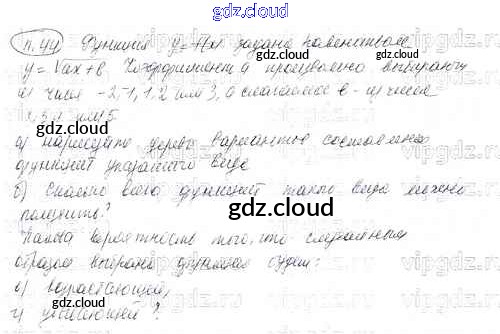 gdz.cloud
п. 44 Функция y = f(x) задана равенством
y = √ax + в. Коэффициент a произвольно выбирают
из чисел -2, -1, 1, 2 или 3, а слагаемое в - из чисел
или 5
а) нарисуйте дерево вариантов составления
функций указанного вида
gdz.cloud
б) Сколько всего функций такого вида можно
получить?
gdz.cloud
Какова вероятность того, что случайным
образом выбрана функция будет:
gdz.cloud
в) возрастающей,
г) убывающей?
gdz.cloud